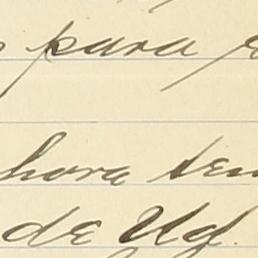 para
hora ten
de Ud.